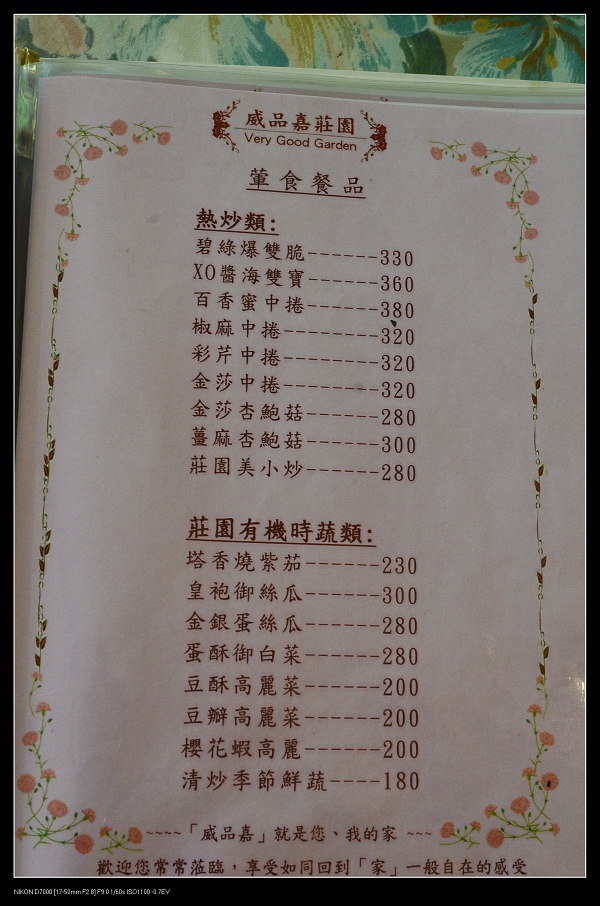 威品嘉莊園
Very Good Garden
葷食餐品
熱炒類:
碧綠爆雙脆------330
XO醬海雙寶------360
百香蜜中捲------380
椒麻中捲--------320
彩芹中捲--------320
金莎中捲--------320
金莎杏鮑菇------280
薑麻杏鮑菇------300
莊園美小炒------280
莊園有機時蔬類:
塔香燒紫茄-------230
皇袍御絲瓜-------300
金銀蛋絲瓜-------280
蛋酥御白菜-------280
豆酥高麗菜-------200
豆瓣高麗菜-------200
櫻花蝦高麗-------200
清炒季節鮮蔬----180
~~~~「威品嘉」就是您、我的家 ~~~
歡迎您常常蒞臨，享受如同回到「家」一般自在的感受
NIKON D7000 [17-50mm F2.8] F9.0 1/60s ISO1100 -0.7EV